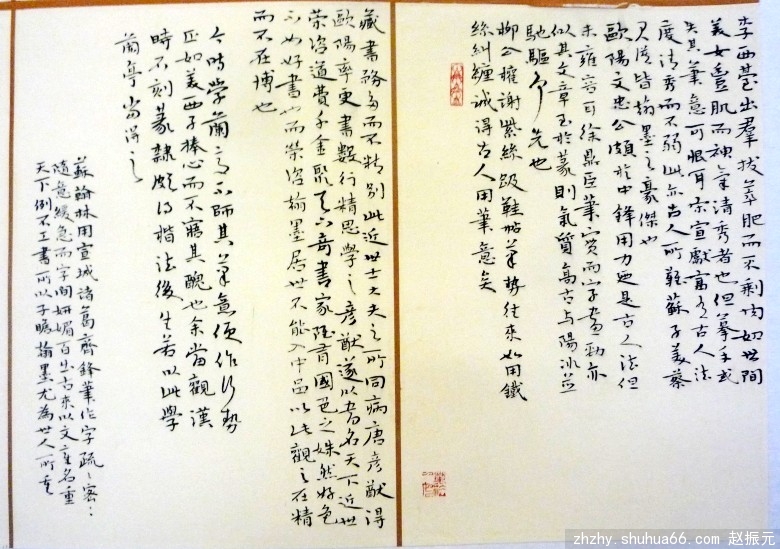 李西台出羣拔萃肥而不剩肉如世间
美女豊肌而神氣清秀者也但摹手或
失其筆意可恨耳宋宣献富有古人法
度清秀而不弱此亦古人所難蘇子美蔡
君谟皆翰墨之豪傑也
歐陽文忠公頗於中鋒用力乃是古人法但
未雍容耳徐鼎臣筆實而字畫勁亦
似其文章至於篆則氣質高古与陽冰並
馳驅争先也
柳公權謝紫絲趿鞋帖筆勢往來如用鐵
絲糾纏诚得古人用筆意矣
藏書務多而不精别此近世士大夫之所同病唐彦猷得
歐陽率更書數行精思學之彦猷遂以書名天下近世
榮咨道費千金聚天下奇書家雖有國色之姝然好色
不如好書也而榮咨翰墨居世不能入中品以此觀之在精
而不在博也
今时学蘭亭不師其筆意便作行勢
正如美西子捧心而不寤其醜也余當觀漢
時石刻篆隸頗得楷法後生若以此學
蘭亭當得之
蘇翰林用宣城諸葛齊鋒筆作字疏疏密密
隨意緩急而字間妍媚百出古來以文章名重
天下例不工書所以子瞻翰墨尤為世人所重
zhzhy.shuhua66.com 赵振元